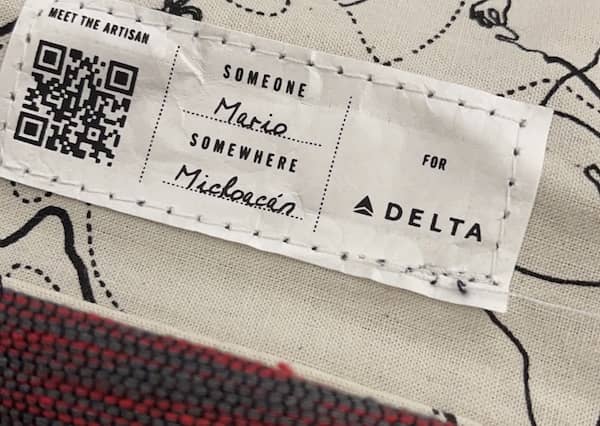 MEET THE ARTISAN
SOMEONE
Mario
SOMEWHERE
Michoacán
FOR
DELTA